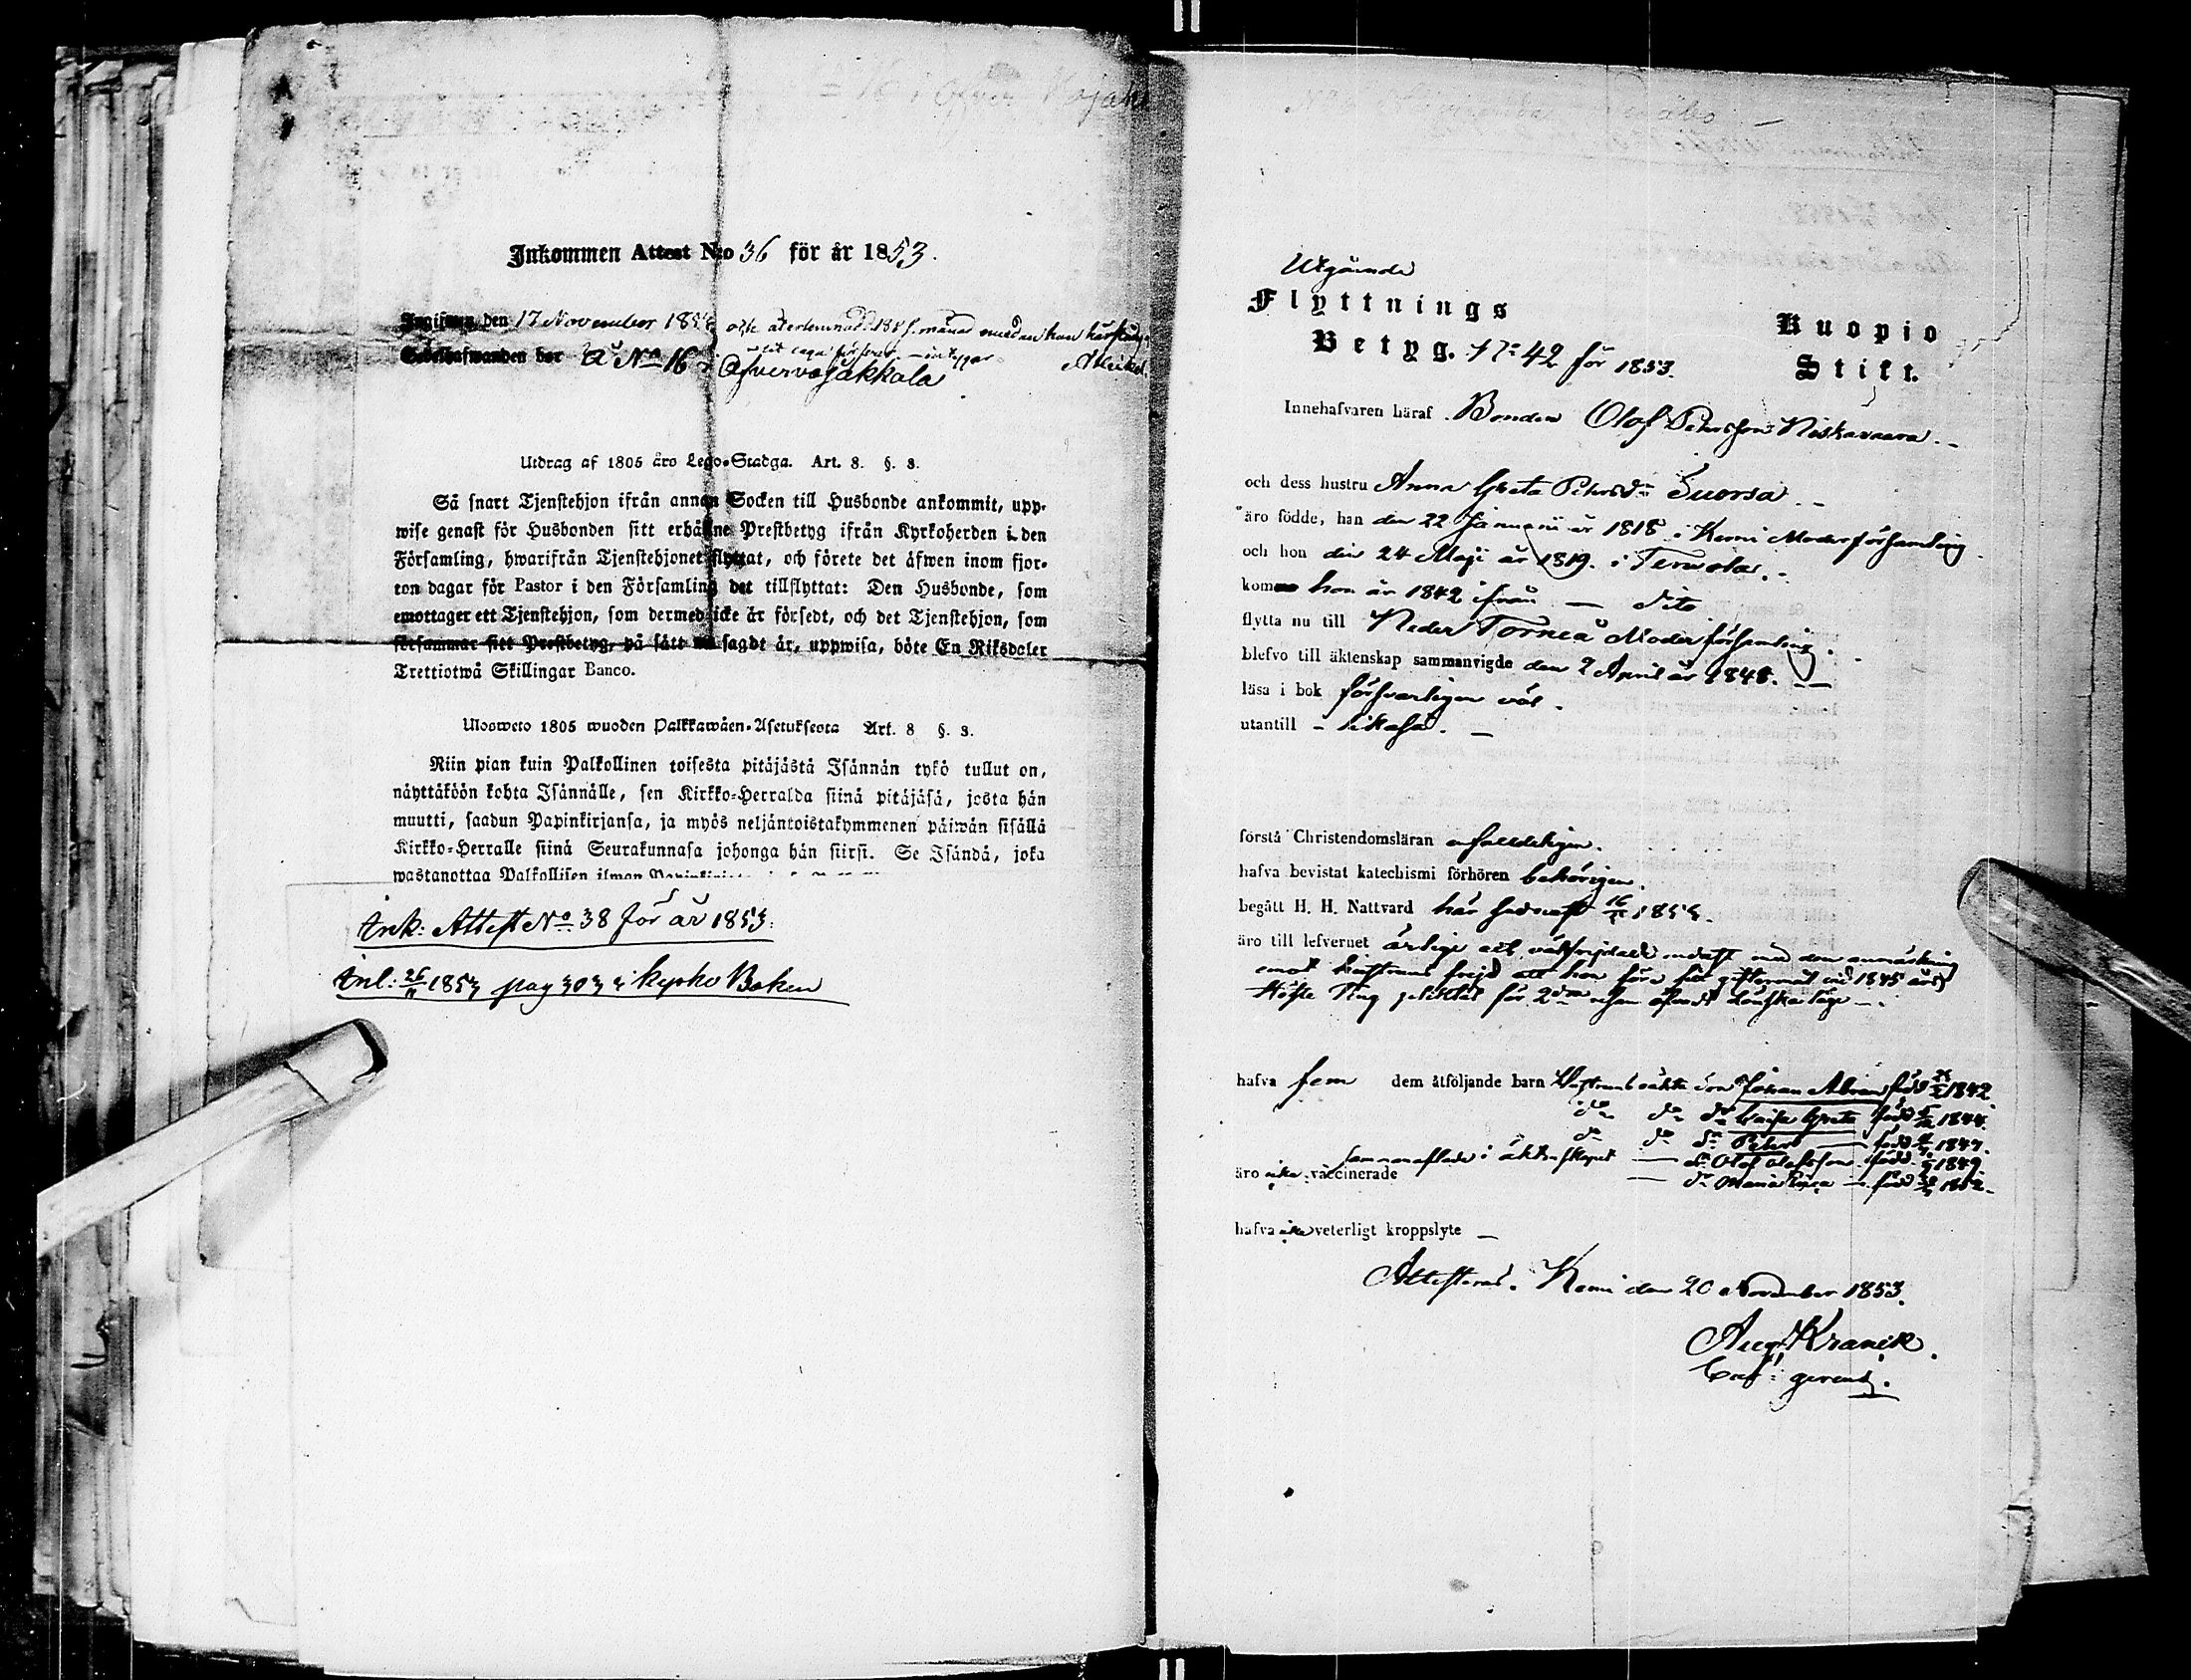 Inkommen Attest N:o 36 för år 1853.
Ingifwen den 17 November 1853
Sedelhafwanden bor å No 16 i Öfvervojakkala
Utdrag af 1805 års Lego-Stadga. Art. 8. §. 3.
Så snart Tjenstehjon ifrån annan Socken till Husbonde ankommit, upp-
wise genast för Husbonden sitt erhållne Prestbetyg ifrån Kyrkoherden i den
Församling, hwarifrån Tjenstehjonet flyttat, och förete det äfwen inom fjor-
ton dagar för Pastor i den Församling det tillflyttat: Den Husbonde, som
emottager ett Tjenstehjon, som dermed icke är försedt, och det Tjenstehjon, som
försummar sitt Prestbetyg, på sätt nu sagdt är, uppwisa, böte En Riksdaler
Trettiotwå Skillingar Banco.
Ulosweto 1805 wuoden Palkkawäen-Asetuksesta Art. 8 §. 3.
Niin pian kuin Palkollinen toisesta pitäjästä Isännän tykö tullut on,
näyttäköön kohta Isännälle, sen Kirkko-Herralda siinä pitäjäsä, josta hän
muutti, saadun Papinkirjansa, ja myös neljäntoistakymmenen päiwän sisällä
Kirkko-Herralle siinä Seurakunnasa johonga hän siirsi. Se Isändä, joka
wastanottaa Palkollisen ilman
Ink: Attest No 38 för år 1853.
Inl: 26/11 1853 pag 303 i kyrko Boken
Utgående
Flyttnings
Betyg. No 42 för 1853.
Kuopio
Stift.
Innehafvaren häraf Bonden Olof Petersson Niskavaara.
och dess hustru Anna Greta Petersdr Suorsa.
äro födde, han den 22 Januarii år 1818 i Kemi Moderförsamling
och hon den 24 Maji år 1819. i Tervola.
kom hon år 1842 ifrån — dito
flytta nu till Neder Torneå Moderförsamling.
blefvo till äktenskap sammanvigde den 2 April år 1848.
läsa i bok försvarligen väl.
utantill - likaså.
förstå Christendomsläran
hafva bevistat katechismi förhören behörigen.
begått H. H. Nattvard här sednast 1853.
äro till lefvernet ärlige och med den anmärkning
emot hustruns frejd att hon före sitt giftermål vid 1845 års
Höste Ting för 2dra resan Lönskaläge
hafva fem dem åtföljande barn Hustruns oäkta son Johan Abram född 1842
do do dr Caisa Greta född 1844.
do do sn Petter — född 1847.
sammanaflade i äktenskapet — sn Olof Olofsson född 1849.
äro icke vaccinerade — dr Maria — född 1852.
hafva icke veterligt kroppslyte —
Attesteras. Kemi den 20 November 1853.
Aug. Kranck.